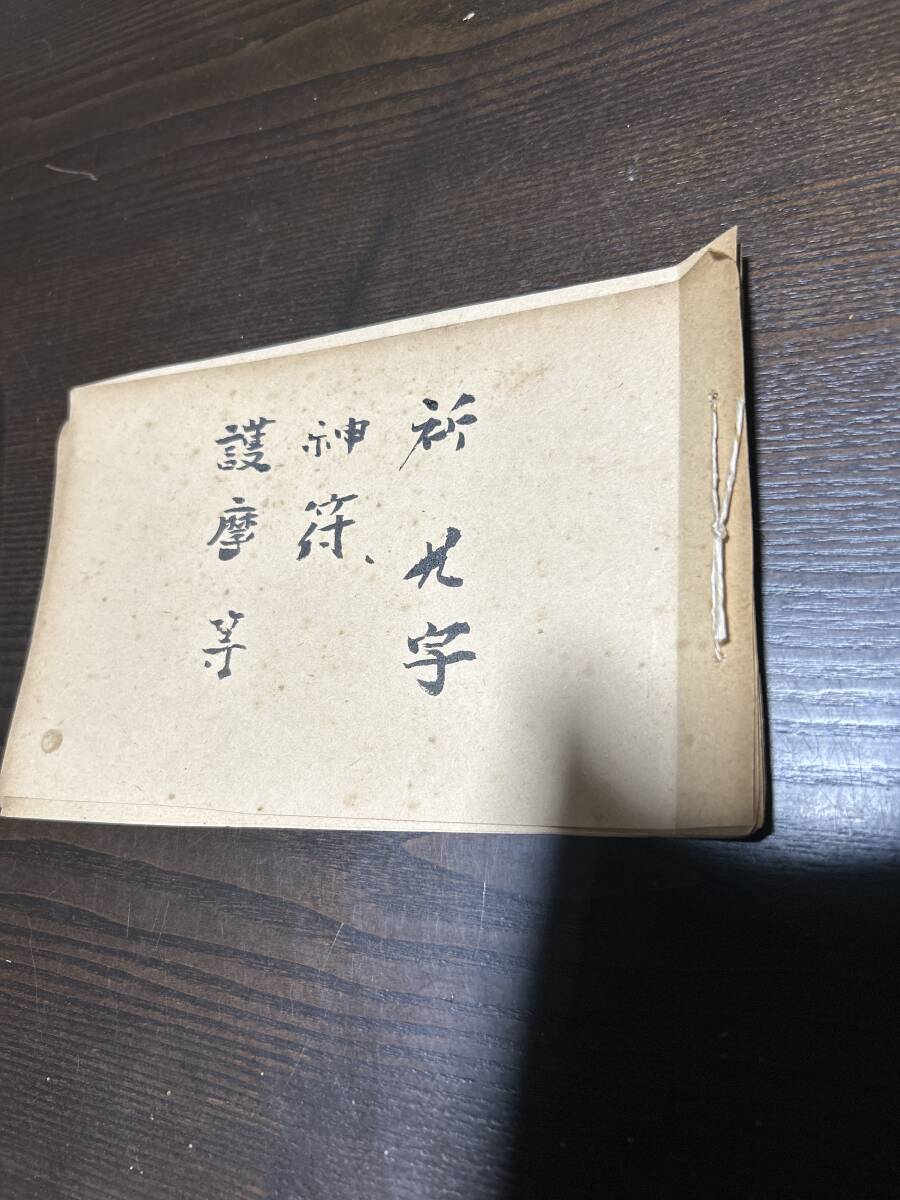 祈九字
神符、
護摩等